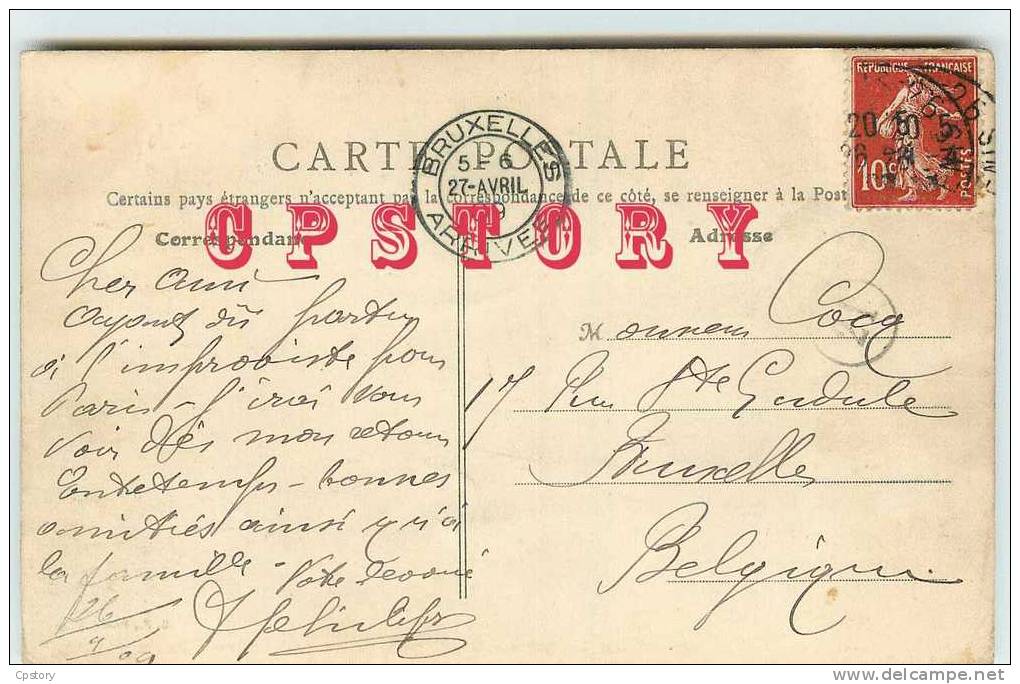 RÉPUBLIQUE FRANÇAISE
10c
POSTES
BRUXELLES
5-6
27-AVRIL
09
ARRIVEE
CARTE POSTALE
Certains pays étrangers n'acceptant pas la correspondance de ce côté, se renseigner à la Post
CPSTORY
Correspondance
Adresse
Cher ami
ayant dû partir
à l'improviste pour
Paris - j'irai vous
voir dès mon retour
Entretemps - bonnes
amitiés ainsi qu'à
la famille - Votre dévoué
26/4/09
Monsieur Cocq
17 Rue Ste Gudule
Bruxelles
Belgique
Cpstory
delcampe.net